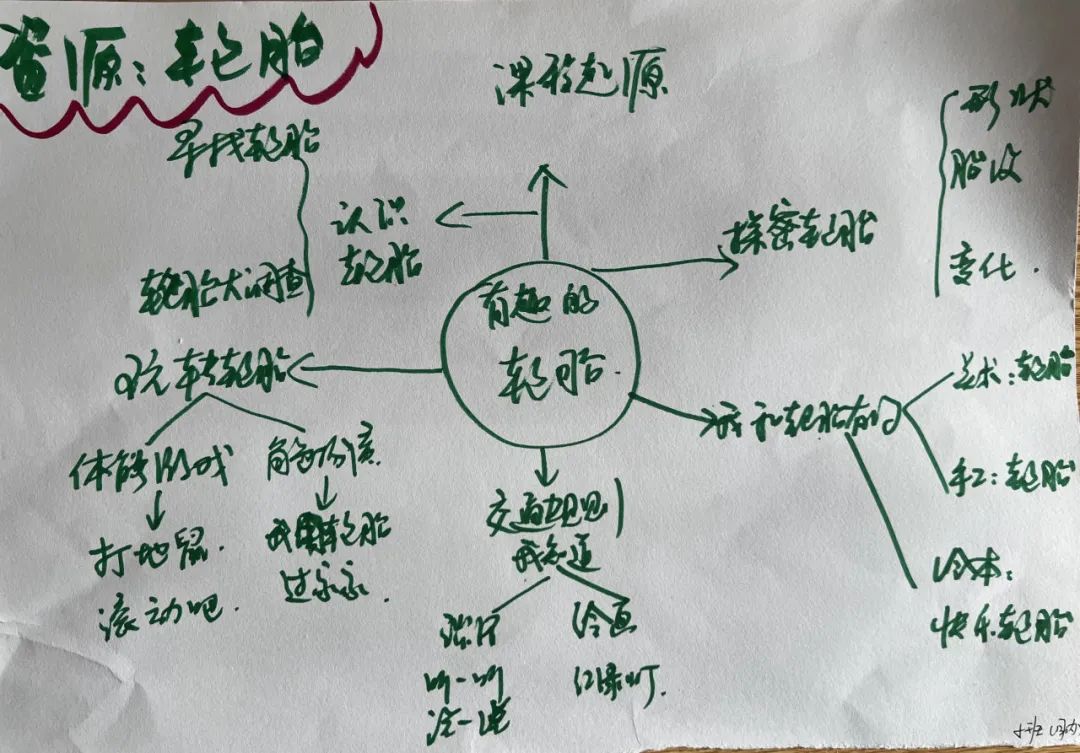 资源：轮胎
课程起源
寻找轮胎
认识
轮胎
轮胎大调查
探密轮胎
形状
胎纹
变化.
有趣的
轮胎.
玩转轮胎
体能游戏
打地鼠.
滚动吧.
角色扮演
我用轮胎
过家家.
交通规则
我知道
谈一说
绘画
红绿灯.
我和轮胎有约
美术：轮胎
手工：轮胎
绘本：
快乐轮胎